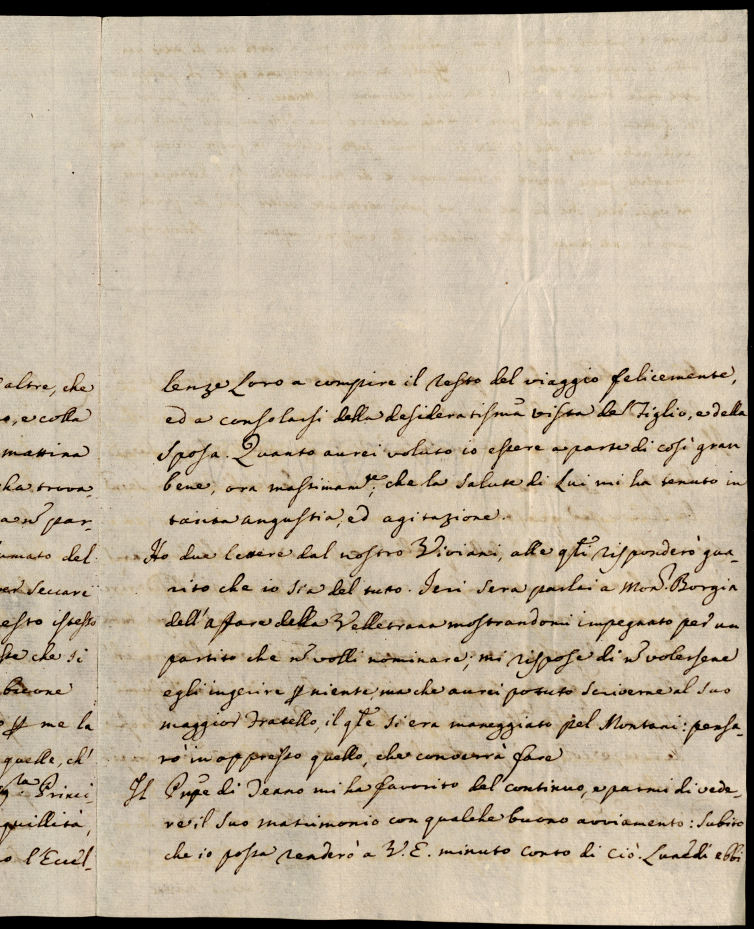 altre, che
o, e colla
mattina
ha trova-
a nō par-
umato del
per seccare
esto istesso
ste che si
bicone
o ꝑ me la
quelle, ch'
Princi-
quillità,
o l'Eccel-
lenze Loro a compire il resto del viaggio felicemente,
ed a consolarsi della desideratissma vista del Figlio, e della
Sposa. Quanto aurei voluto io essere a parte di così gran
bene, ora massimamte, che la salute di Lui mi ha tenuto in
tanta angustia, ed agitazione.
Ho due lettere dal nostro Viviani, alle qli risponderò gua-
rito che io sia del tutto. Ieri sera parlai a Monr. Borgia
dell'affare della Velletrana mostrandomi impegnato per un
partito che nō volli nominare; mi rispose di nō volersene
egli ingerire ꝑ niente, ma che aurei potuto scriverne al suo
maggior Fratello, il qle si era maneggiato pel Montani: pensa-
rò in appresso quello, che converrà fare
Il Pnpe di Teano mi ha favorito del continuo, e parmi di vede-
re il suo matrimonio con qualche buono avviamento: subito
che io possa renderò a V. E. minuto conto di ciò. Lunedì ebbi